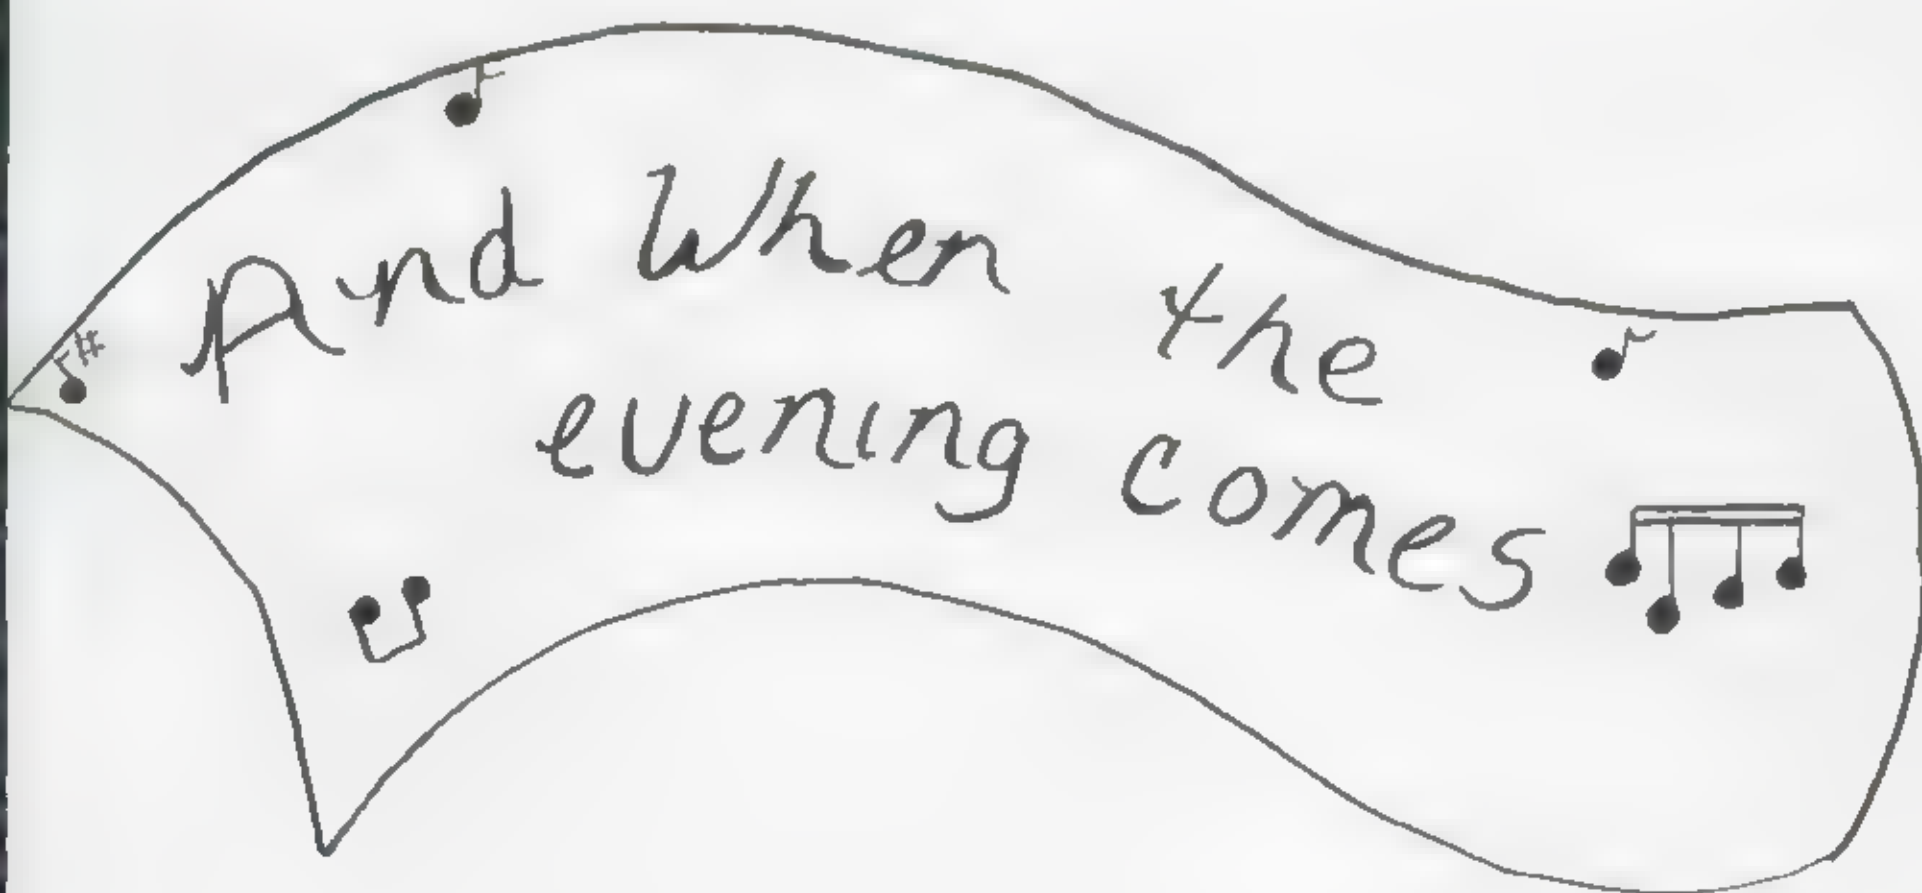 And When the
evening comes